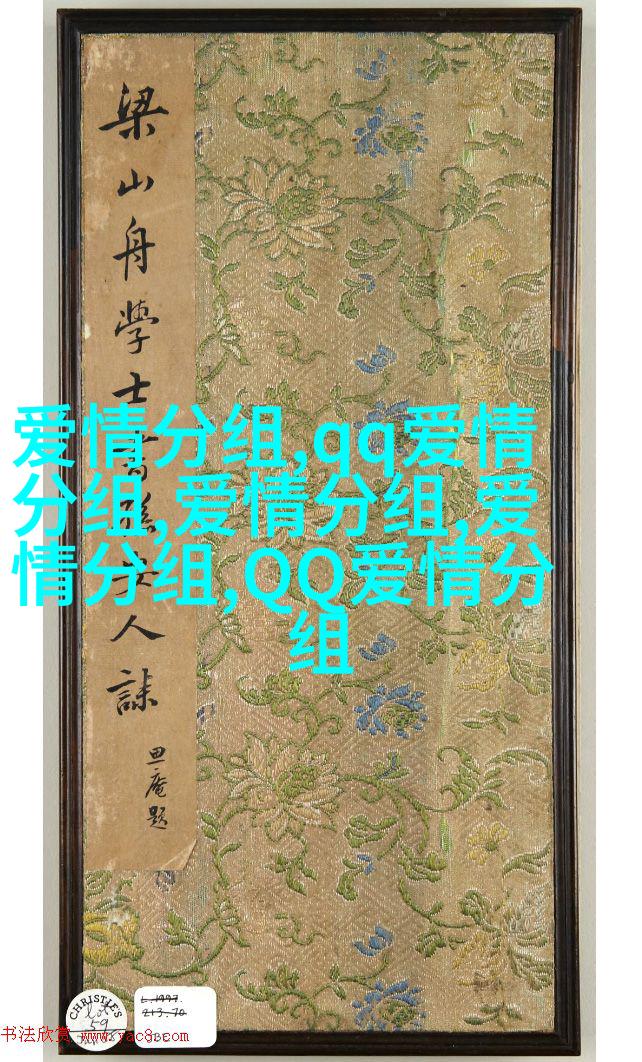 梁山舟學士書孫夫人誄
思庵題
爱情分组,qq爱情
分组,爱情分组,爱
情分组,QQ爱情分
组
CHRISTIE'S
lot
59
L.1997.
213.70
书法欣赏 www.yac8.com